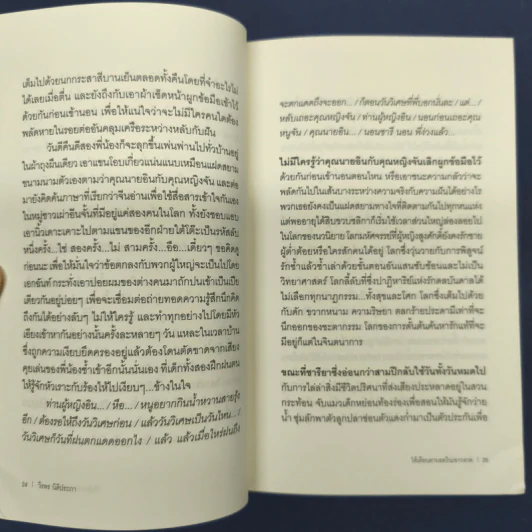 เต็มไปด้วยนกกระสาสีบานเย็นตลอดทั้งคืนโดยที่จำอะไรไม่
ได้เลยเมื่อตื่น และยังถึงกับเอาผ้าเช็ดหน้าผูกข้อมือเข้าไว้
ด้วยกันก่อนเข้านอน เพื่อให้แน่ใจว่าจะไม่มีใครคนใดต้อง
พลัดหายในรอยต่ออันคลุมเครือระหว่างหลับกับฝัน
วันดีคืนดีสองพี่น้องก็จะลุกขึ้นเพ่นพ่านไปทั่วบ้านอยู่
ในผ้าถุงผืนเดียว เอาแขนโอบเกี่ยวแน่นแนบเหมือนแฝดสยาม
ขนานนามตัวเองตามว่าคุณนายอินกับคุณหญิงจัน และต่อ
มายังคิดค้นภาษาที่เรียกว่าจีนอ่านเพื่อใช้สื่อสารเข้าใจกันเอง
ในหมู่ชาวเผ่าอินจันที่มีอยู่แค่สองคนในโลก ทั้งยังชอบแอบ
เอานิ้วเคาะเบาะไปตามแขนของอีกฝ่ายใต้โต๊ะเป็นรหัสลับ
หนึ่งครั้ง...ใช่ สองครั้ง...ไม่ สามครั้ง...อือ...เดี๋ยวๆ ขอคิดดู
ก่อนนะ เพื่อให้มั่นใจว่าข้อตกลงกับพวกผู้ใหญ่จะเป็นไปโดย
เอกฉันท์ กระทั่งเอาปอยผมของต่างคนมาถักปนเข้าเป็นเปีย
เดียวกันอยู่บ่อยๆ เพื่อจะเชื่อมต่อถ่ายทอดความรู้สึกนึกคิด
ถึงกันได้อย่างลับๆ ไม่ให้ใครรู้ และทำทุกอย่างไปโดยมีหัว
เอียงเข้าหากันอย่างนั้นครั้งละหลายๆ วัน แหละในเวลาบ้าน
ซึ่งถูกความเงียบยึดครองอยู่แล้วต้องโดนตัดขาดจากเสียง
คุยเล่นของพี่น้องซ้ำเข้าอีกนั้นนั่นเอง ที่เด็กทั้งสองฝึกฝนตน
ให้รู้จักหัวเราะกับร้องไห้ไปเงียบๆ...ข้างในใจ
ท่านผู้หญิงอิน... / หือ... / หนูอยากกินน้ำหวานสายรุ้ง
อีก / ต้องรอให้ถึงวันวิเศษก่อน / แล้ววันวิเศษเป็นวันไหน... /
วันวิเศษก็วันที่ฝนตกแดดออกไง / แล้ว แล้วเมื่อไหร่ฝนถึง
24 | วีรพร นิติประภา
จะตกแดดถึงจะออก... / ก็ตอนวันวิเศษที่พี่บอกนั่นละ / แต่... /
หลับเถอะคุณหญิงจัน / ท่านผู้หญิงอิน / นอนก่อนเถอะคุณ
หนูจัน / คุณนายอิน... / นอนซารี นอน พี่ง่วงแล้ว...
ไม่มีใครรู้ว่าคุณนายอินกับคุณหญิงจันเลิกผูกข้อมือไว้
ด้วยกันก่อนเข้านอนตอนไหน หรือเอาชนะความกลัวว่าจะ
พลัดกันไปในเส้นบางระหว่างความจริงกับความฝันได้อย่างไร
พวกเธอยังคงเป็นแฝดสยามทางใจที่ติดตามกันไปทุกหนแห่ง
แต่พออายุได้สิบขวบชลิกาก็เริ่มใช้เวลาส่วนใหญ่ล่องลอยไป
ในโลกของนวนิยาย โลกมหัศจรรย์ที่ผู้หญิงสูงศักดิ์ยังคงรักชาย
ผู้ต่ำต้อยหรือใครสักคนได้อยู่ โลกซึ่งวุ่นวายกับการพิสูจน์
รักซ้ำแล้วซ้ำเล่าด้วยขั้นตอนอันแสนซับซ้อนและไม่เป็น
วิทยาศาสตร์ โลกลี้ลับที่ซึ่งปาฏิหาริย์แห่งรักดลบันดาลได้
ไม่เลือกทุกนาฏกรรม...ทั้งสุขและโศก โลกซึ่งเต็มไปด้วย
กับดัก ขวากหนาม ความริษยา ตลกร้ายประดามีเท่าที่จะ
นึกออกของชะตากรรม โลกของการดั้นด้นค้นหารักแท้ที่จะ
มีอยู่ก็แต่ในจินตนาการ
ขณะที่ชารียาซึ่งอ่อนกว่าสามปีกลับใช้วันทั้งวันหมดไป
กับการไล่ล่าสิ่งมีชีวิตปริศนาที่ส่งเสียงประหลาดอยู่ในสวน
กระท้อน จับแมวเด็กหย่อนท้องร่องเพื่อสอนให้มันรู้จักว่าย
น้ำ ซุ่มลักพาตัวลูกปลาช่อนตัวแดงก่ำมาเป็นตัวประกันเพื่อ
ไส้เดือนตาบอดในเขาวงกต | 25